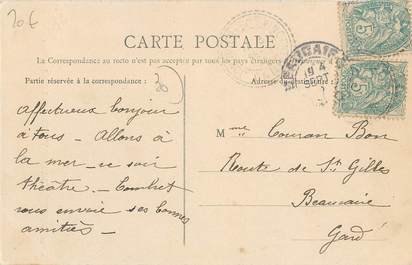 20€
CARTE POSTALE
La Correspondance au recto n'est pas acceptée par tous les pays étrangers
Partie réservée à la correspondance
20
Affectueux bonjour
à tous. Allons à
la mer ce soir
théâtre. Combret
vous envoie ses bonnes
amitiés
Mme Bon
Route de St Gilles
Beaucaire
Gard
BEAUCAIRE
19 4
SEPT
5
5